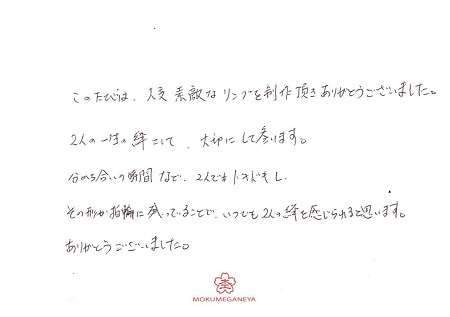 このたびは、大変素敵なリングを制作頂きありがとうございました。
2人の一生の絆として、大切にして参ります。
分かち合いの瞬間など、2人でもドキドキし、
その形が指輪に残っていることで、いつでも2人の絆を感じられると思います。
ありがとうございました。
MOKUMEGANEYA